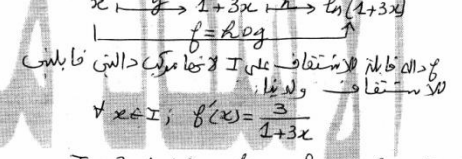 x ⟼ g → 1+3x ⟼ h → ln(1+3x)
f = h∘g
f دالة قابلة للاشتقاق على I لأنها مركب دالتين قابلتين
للاشتقاق ولدينا:
∀ x ∈ I ; f'(x) = 3/(1+3x)